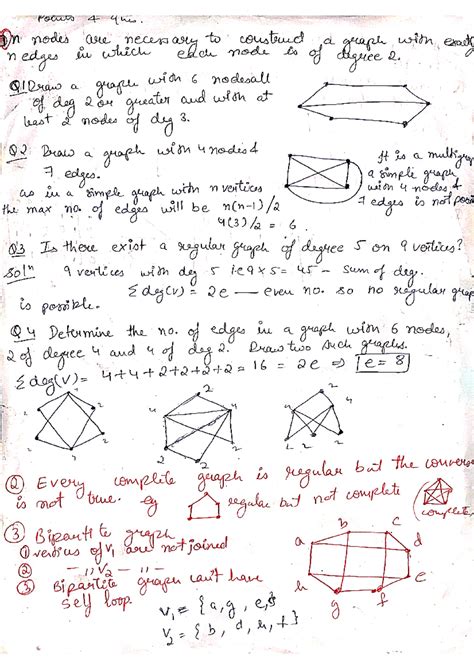 ① n nodes are necessary to construct a graph with exactly
n edges in which each node is of digree 2.
Q1 Draw a graph with 6 nodes all
of deg 2 or greater and with at
least 2 nodes of deg 3.
Q2 Draw a graph with 4 nodes &
7 edges.
as in a simple graph with n vertices
the max no. of edges will be n(n-1)/2
4(3)/2 = 6.
It is a multigrap
a simple graph
with 4 nodes &
7 edges is not possi
Q3 Is there exist a regular graph of degree 5 on 9 vertices?
Solⁿ 9 vertices with deg 5 i.e 9 x 5 = 45 - sum of deg.
Σdeg(v) = 2e — even no. so no regular grap
is possible.
Q4 Determine the no. of edges in a graph with 6 nodes,
2 of degree 4 and 4 of deg 2. Draw two such graphs.
Σdeg(V) = 4+4+2+2+2+2 = 16 = 2e ⇒ e = 8
② Every complete graph is regular but the convers
is not true. eg regular but not complete
complete
③ Bipartite graph
① vertices of V₁ are not joined
② -"- V₂ -"-
③ Bipartite graph can't have
self loop.
a b c d e f g h
V₁ = {a, g, e,
V₂ = {b, d, h, f}